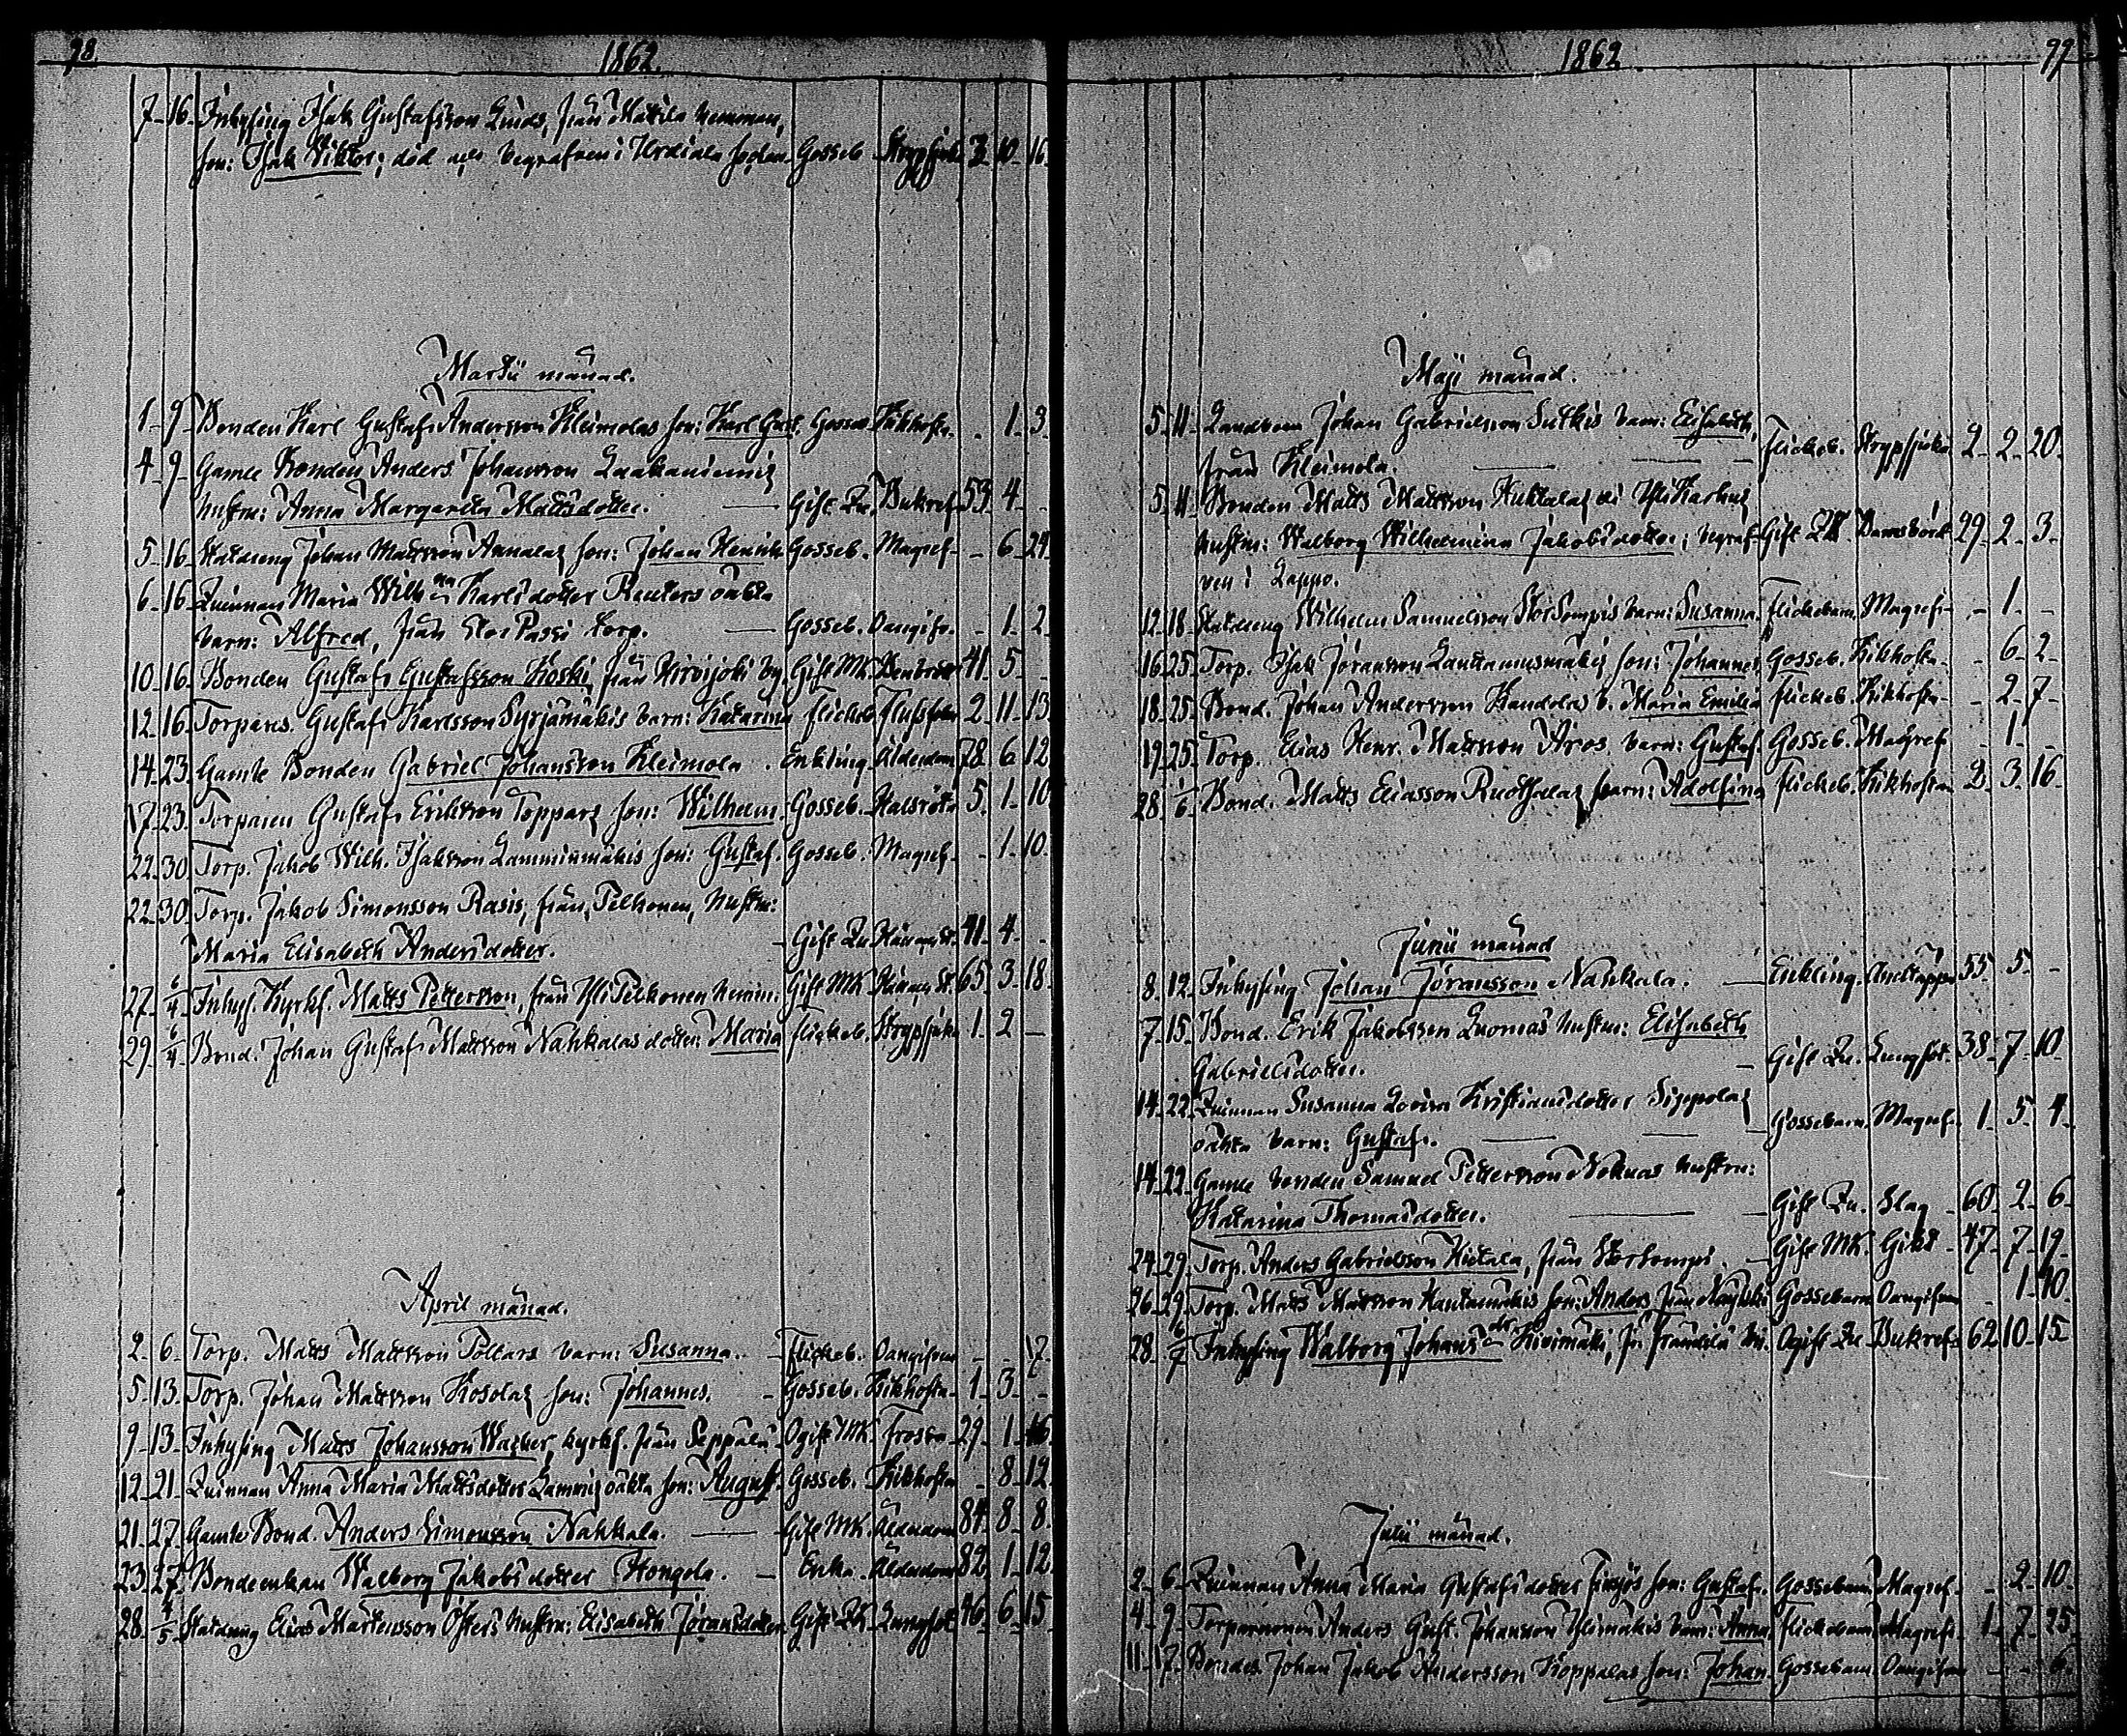 98
1862.
7 16 Inhysing Isak Gustafsson Linds, från Mattila hemman,
son: Isak Viktor; död och begrafven i Urdiala socken Gosseb. Strypsjuk 3 10 16
Martii månad.
1 9 Bonden Karl Gustaf Andersson Kleimolas son: Karl Gust. Gosseb. Kikhosta - 1 3
4 9 Gamle Bonden Anders Johansson
hustru: Anna Margareta Mattsdotter. Gift Qu. Bukref 53 4 -
5 16 Statdreng Johan Mattsson Annalas son: Johan Henrik Gosseb. Magref - 6 24
6 16 Quinnan Maria Wilh:na Karlsdotter Rauters oäkta
barn: Alfred, från Stor Passi torp. Gosseb. Oangifv. - 1 2
10 16 Bonden Gustaf Gustafsson Koski från Hirvijoki by. Gift MK. 41 5 -
12 16 Torpares Gustaf Karlsson Syrjämäkis barn: Katarina Flickeb. Flussfeber 2 11 13
14 23 Gamle Bonden Gabriel Johansson Kleimola. Enkling Ålderdom 78 6 12
17 23 Torparen Gustaf Eriksson Toppars son: Wilhelm. Gosseb. Halsröta 5 1 10
22 30 Torp. Jakob Wilh. Isaksson Lamminmäkis son: Gustaf. Gosseb. Magref - 1 10
22 30 Torp. Jakob Simonsson Rasis, från Pelkonen, hustru:
Maria Elisabeth Andersdotter. Gift Qu. 41 4 -
27 6/4 Inhys. Kyrkf. Matts Pettersson, från Yli Pelkonen hemm. Gift MK. 65 3 18
29 6/4 Bond. Johan Gustaf Mattsson Nahkalas dotter: Maria Flickeb. Strypsjuka 1 2 -
April månad.
2 6 Torp. Matts Mattsson Pollars barn: Susanna. Flickeb. Oangifven - - 7
5 13 Torp. Johan Mattsson Kosolas son: Johannes. Gosseb. Kikhosta 1 3 -
9 13 Inhysing Matts Johansson Wacker, kyrkf. från Seppälä Ogift MK. Frossa 29 1 16
12 21 Quinnan Anna Maria Mattsdotter Lammis oäkta son: August. Gosseb. Kikhosta - 8 12
21 27 Gamle Bond. Anders Simonsson Nahkala. Gift MK. Ålderdom 84 8 8
23 27 Bondeenkan Walborg Jakobsdotter Hongola. Enka. Ålderdom 82 1 12
28 4/5 Statdreng Elias Mårtensson Östers hustru: Elisabeth Jöransdotter Gift Qu. Lungsot 46 6 15
1862
99
Maji månad.
5 11 Johan Gabrielsson Sutkis barn: Elisabeth,
från Kleimola. Flickeb. Strypsjuka 2 2 20
5 11 Bonden Matts Mattsson Huktalas
hustru: Walborg Wilhelmina Jakobsdotter; begraf- Gift Qu. Barnsbörd 29 2 3
ven i Lappo.
12 18 Statdreng Wilhelm Samuelsson Stor Sompis barn: Susanna. Flickebarn. Magref - 1 -
16 25 Torp. Isak Jöransson Lautamusmäkis son: Johannes Gosseb. Kikhosta - 6 2
18 25 Bond. Johan Andersson Kandolas b. Maria Emilia Flickeb. Kikhosta - 2 7
19 25 Torp. Elias Henr. Mattsson Aros barn: Gustaf. Gosseb. Magref - 1 -
28 1/6 Bond. Matts Eliasson Ruotsalas barn: Adolfina Flickeb. Kikhosta 2 3 16
Junii månad
8 12 Inhysing Johan Jöransson Nahkala. Enkling. Andtäppa 55 5 -
7 15 Bond. Erik Jakobsson Luomas hustru: Elisabeth
Gabrielsdotter. Gift Qu. Lungsot 38 7 10
14 22 Quinnan Susanna Lovisa Kristiansdotter Sippolas
oäkta barn: Gustaf. Gossebarn. Magref 1 5 4
14 22 Gamle bonden Samuel Pettersson Nokuas hustru:
Katarina Thomasdotter. Gift Qu. Slag 60 2 6
24 29 Torp. Anders Gabrielsson Hietala, från Storsompi. Gift MK. Gikt 47 7 19
26 29 Torp. Matts Mattsson Kantamäkis son: Anders från Gossebarn Oangifven - 1 10
28 6/7 Inhysing Walborg Johansdr Kivimäki, fr. Ogift Qu. Bukref 62 10 15
Julii månad.
2 6 Quinnan Anna Maria Gustafsdotter son: Gustaf. Gossebarn. Magref - 2 10
4 9 Torparmannen Anders Gust. Johansson Ylimäkis barn: Anna. Flickebarn. Magref 1 7 25
11 17 Bondes Johan Jakob Andersson Koppalas son: Johan. Gossebarn Oangifven - - 6